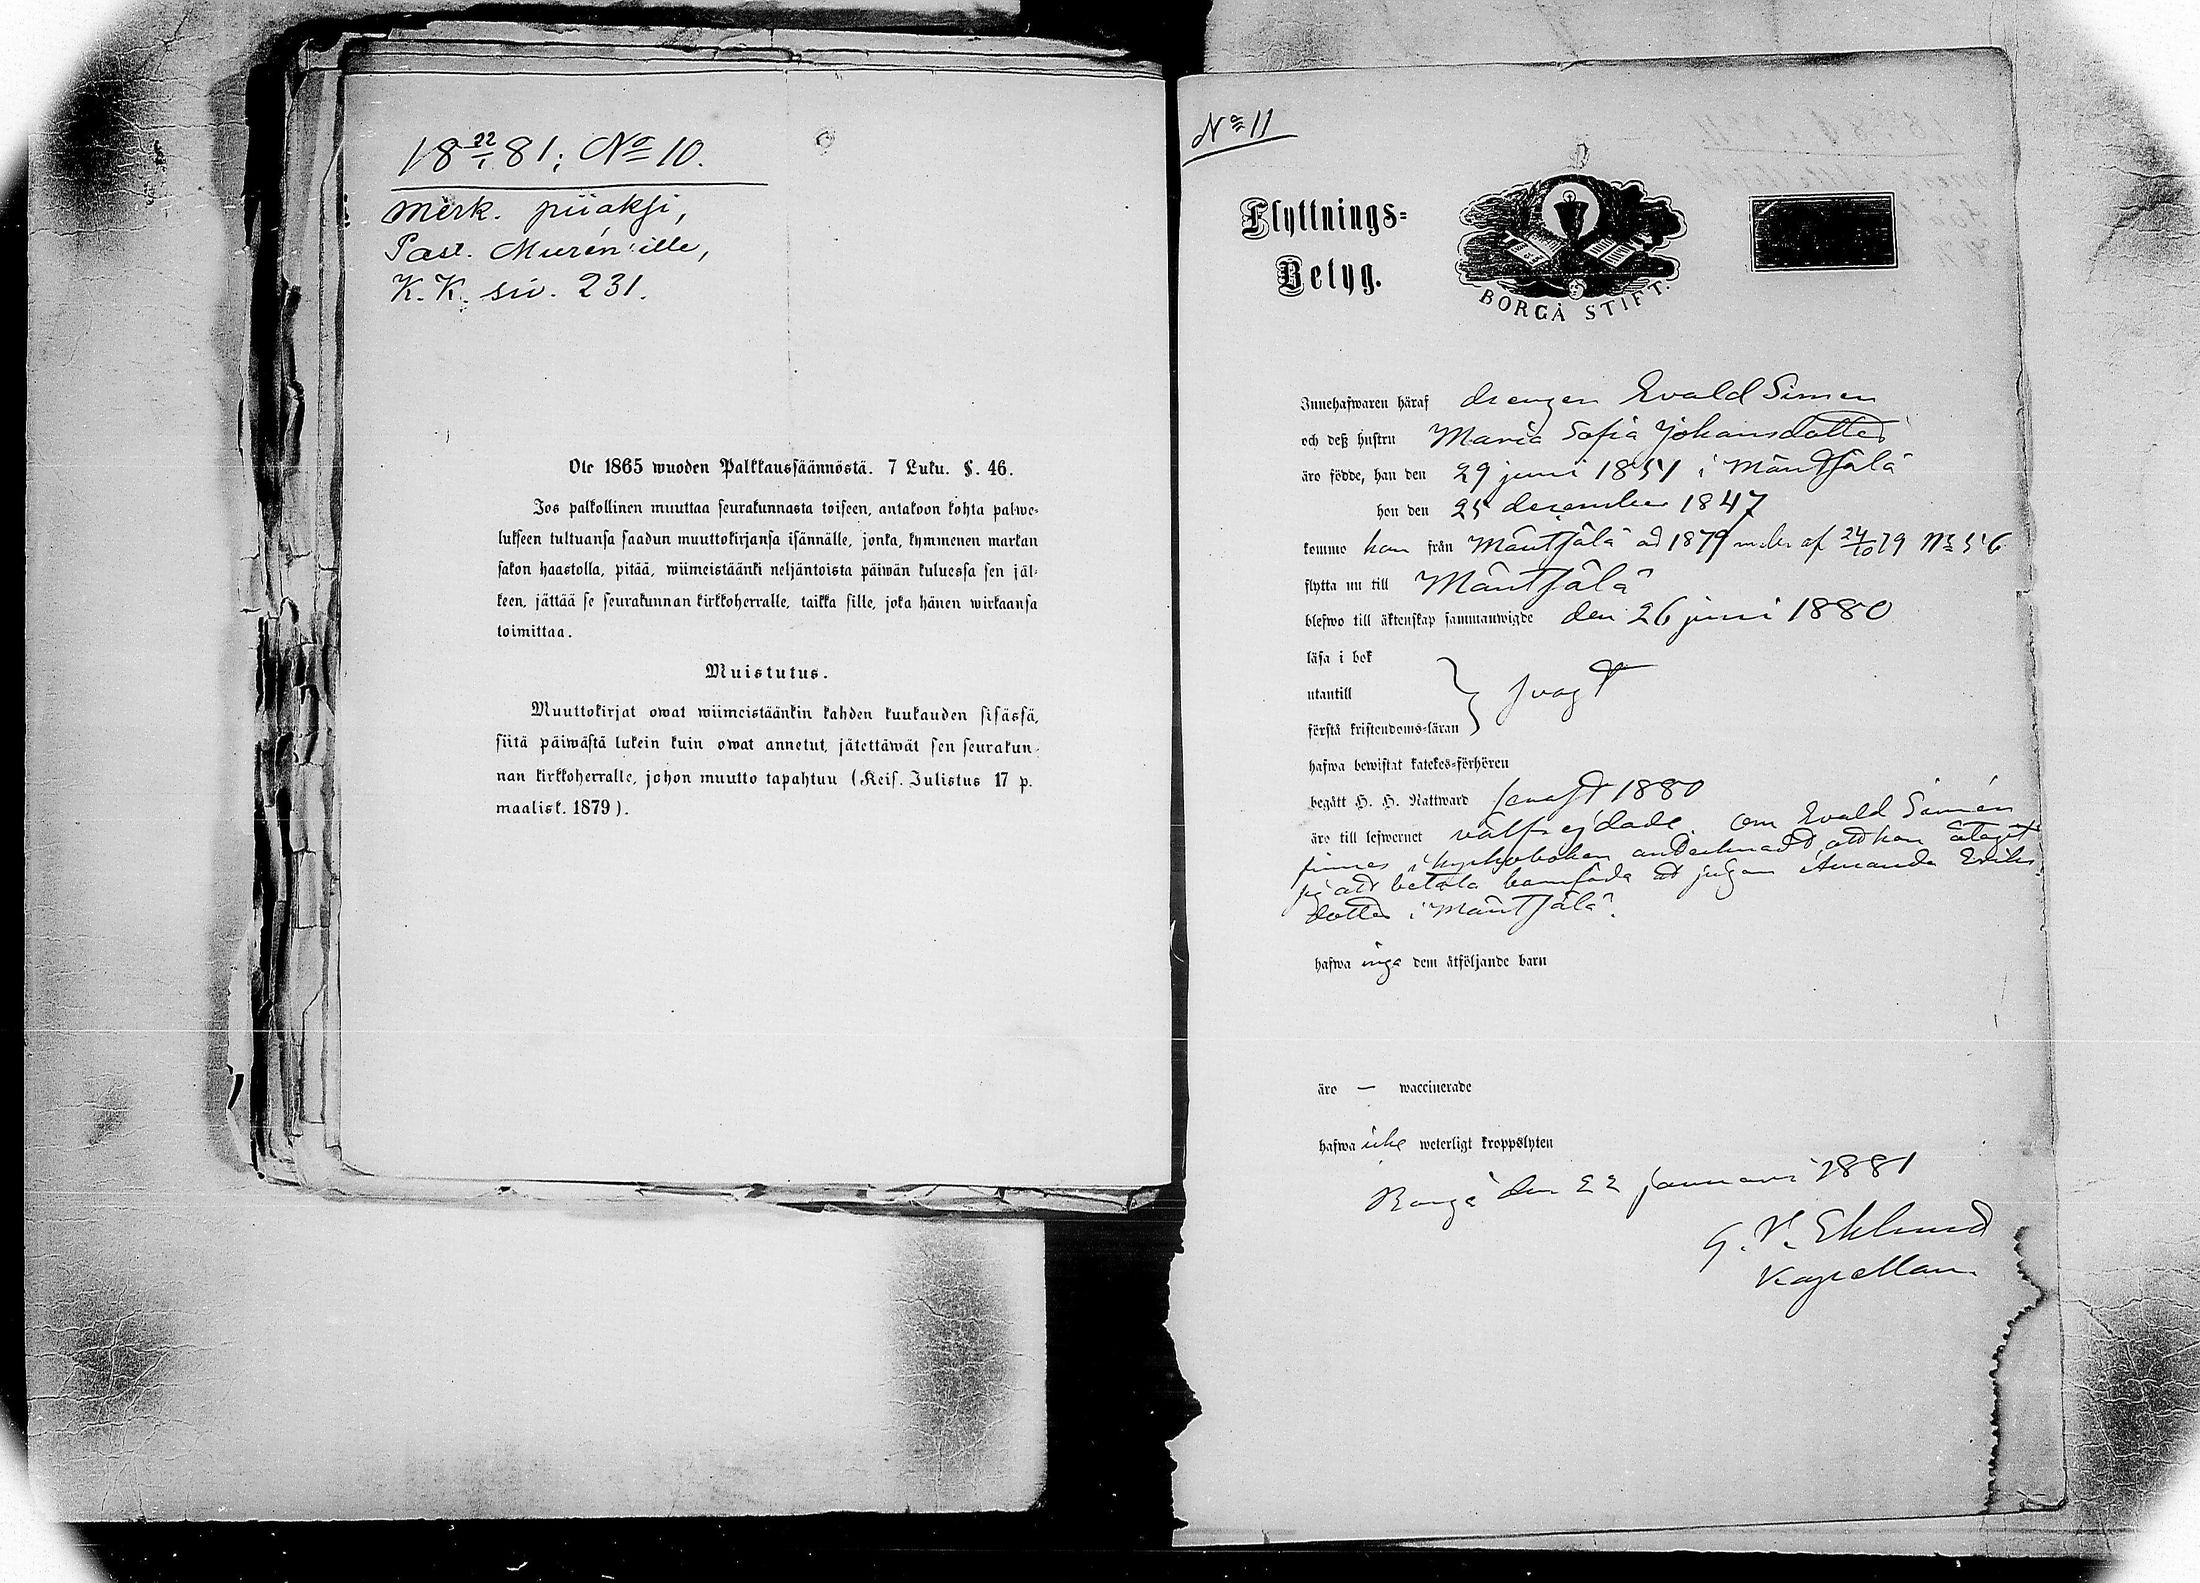 18 22/1 81; No 10.
Merk. piiaksi,
Past. Murén'ille,
K. K. siv. 231.
Ote 1865 wuoden Palkkaussäännöstä. 7 Luku. §. 46.
Jos palkollinen muuttaa seurakunnasta toiseen, antakoon kohta palwe-
lukseen tultuansa saadun muuttokirjansa isännälle, jonka, kymmenen markan
sakon haastolla, pitää, wiimeistäänki neljäntoista päiwän kuluessa sen jäl-
keen, jättää se seurakunnan kirkkoherralle, taikka sille, joka hänen wirkaansa
toimittaa.
Muistutus.
Muuttokirjat owat wiimeistäänkin kahden kuukauden sisässä,
siitä päiwästä lukein kuin owat annetut, jätettäwät sen seurakun-
nan kirkkoherralle, johon muutto tapahtuu (Keis. Julistus 17 p.
maalisk. 1879).
No 11
Flyttnings-
Betyg.
BORGÅ STIFT.
Innehafwaren häraf drengen Evald Simen
och deß hustru Maria Sofia Johansdotter
äro födde, han den 29 juni 1851 i Mäntsälä
hon den 25 december 1847
komme han från Mäntsälä ad 1879 af 24/10 79 No 56
flytta nu till Mäntsälä
blefwo till äktenskap sammanwigde den 26 juni 1880
läsa i bok
utantill
} svagt
första kristendoms-läran
hafwa bewistat katekes-förhören
begått H. H. Nattward senast 1880
äro till lefwernet välfrejdade. Om Evald Simén
finnes i kyrkoboken antecknadt, att han åtagit
sig att betala barnföda åt pigan Amanda Eriks-
dotter i Mäntsälä.
hafwa inga dem åtföljande barn
äro — waccinerade
hafwa icke weterligt kroppslyten
Borgå den 22 januari 1881
G. V. Eklund
Kapellan